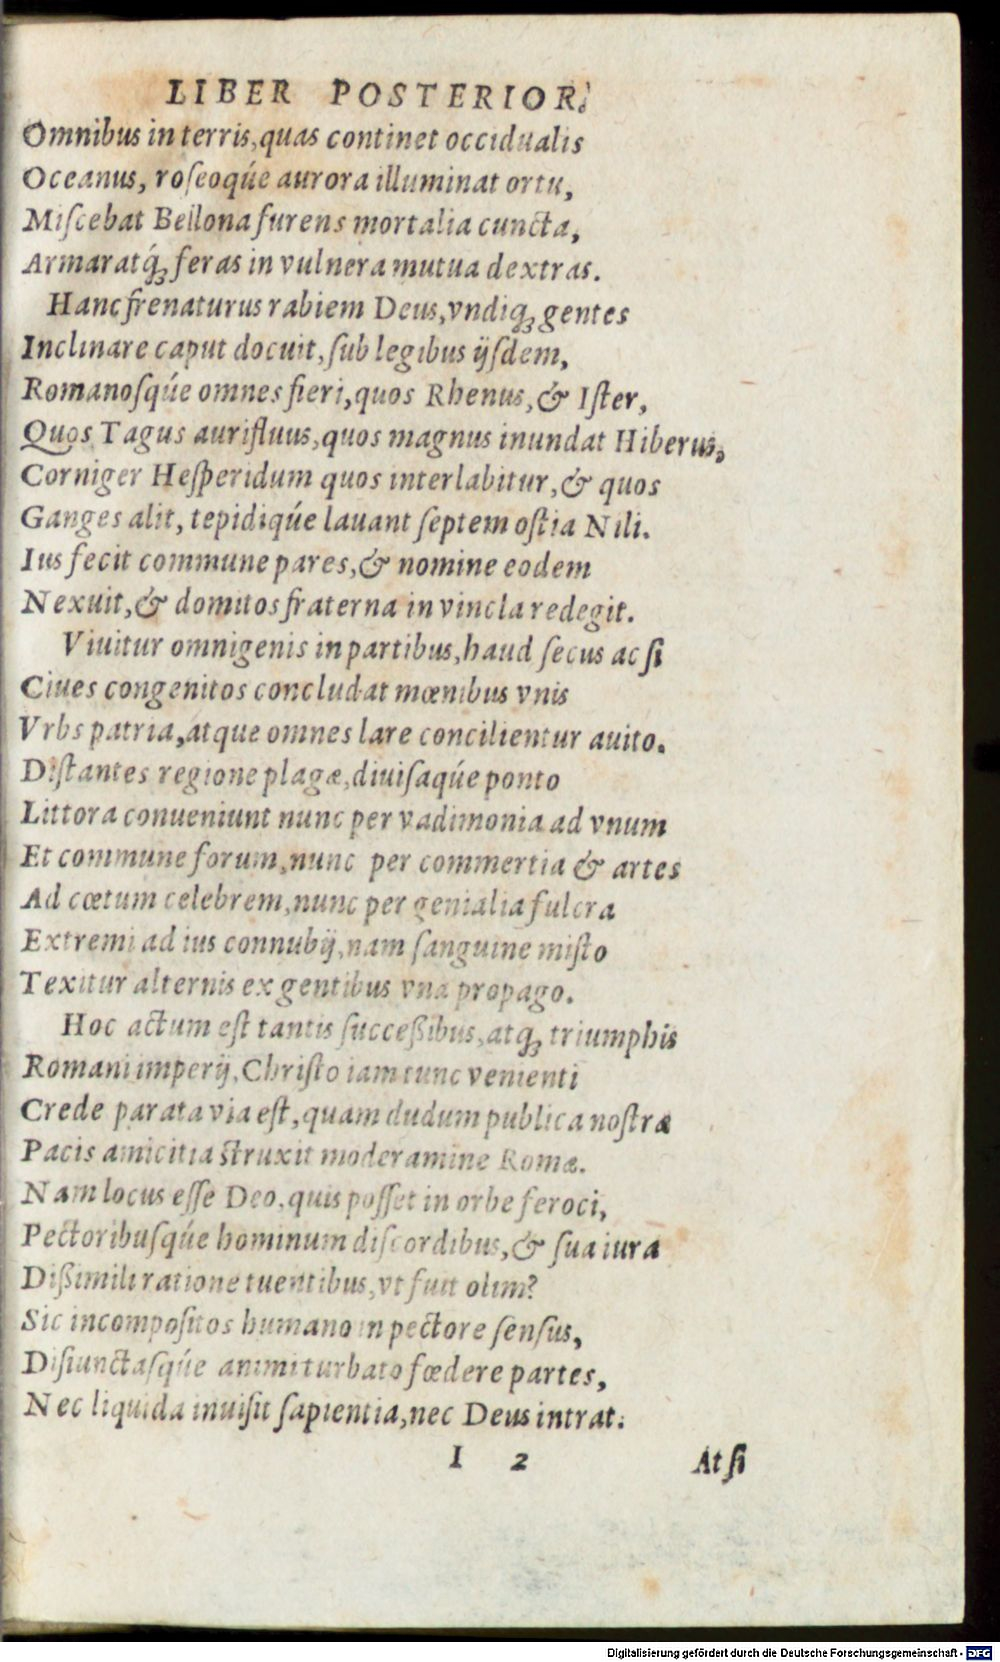 LIBER POSTERIOR.
Omnibus in terris, quas continet occidualis
Oceanus, roſeoqúe aurora illuminat ortu,
Miſcebat Bellona furens mortalia cuncta,
Armaratq́ꝫ feras in vulnera mutua dextras.
Hanc frenaturus rabiem Deus, vndiqꝫ gentes
Inclinare caput docuit, ſub legibus ijſdem,
Romanoſqúe omnes fieri, quos Rhenus, & Iſter,
Quos Tagus aurifluus, quos magnus inundat Hiberus,
Corniger Heſperidum quos interlabitur, & quos
Ganges alit, tepidiqúe lauant ſeptem oſtia Nili.
Ius fecit commune pares, & nomine eodem
Nexuit, & domitos fraterna in vincla redegit.
Viuitur omnigenis in partibus, haud ſecus ac ſi
Ciues congenitos concludat mœnibus vnis
Vrbs patria, atque omnes lare concilientur auito.
Diſtantes regione plagæ, diuiſaqúe ponto
Littora conueniunt nunc per vadimonia ad vnum
Et commune forum, nunc per commertia & artes
Ad cœtum celebrem, nunc per genialia fulcra
Extremi ad ius connubij, nam ſanguine miſto
Texitur alternis ex gentibus vna propago.
Hoc actum eſt tantis ſucceßibus, atqꝫ triumphis
Romani imperij, Chriſto iam tunc venienti
Crede parata via eſt, quam dudum publica noſtræ
Pacis amicitia ſtruxit moderamine Romæ.
Nam locus eſſe Deo, quis poſſet in orbe feroci,
Pectoribuſqúe hominum diſcordibus, & ſua iura
Dißimili ratione tuentibus, vt fuit olim?
Sic incompoſitos humano in pectore ſenſus,
Diſiunctaſqúe animi turbato fœdere partes,
Nec liquida inuiſit ſapientia, nec Deus intrat.
I 2 At ſi
Digitalisierung gefördert durch die Deutsche Forschungsgemeinschaft - DFG